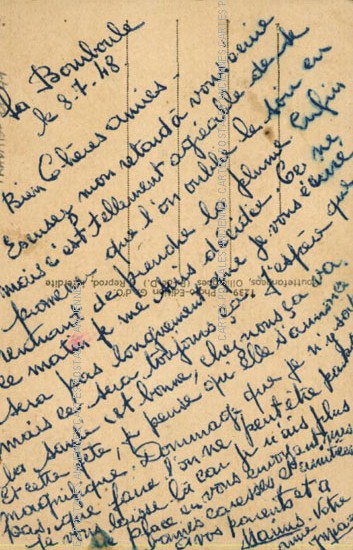 La Bourboule
le 8-7-48.
Bien Chères amies.
Excusez mon retard à vous écrire
mais c'est tellement agréable de se
promener que l'on oublie le
de prendre la plume. Enfin
le matin je me suis décidée. Ce ne
sera pas longuement que je vous écrirai
mais ce sera toujours ça. J'espère que
la santé est bonne, chez nous ça va.
Et cette fête, je pense qu'elle s'annonce
magnifique. Dommage que je n'y sois
pas, que faire l'on ne peut être partout
je vous laisse là car je n'ai plus
place en vous envoyant mes
bonnes caresses d'amitiés
à vos parents et à
Mains. Votre
amie